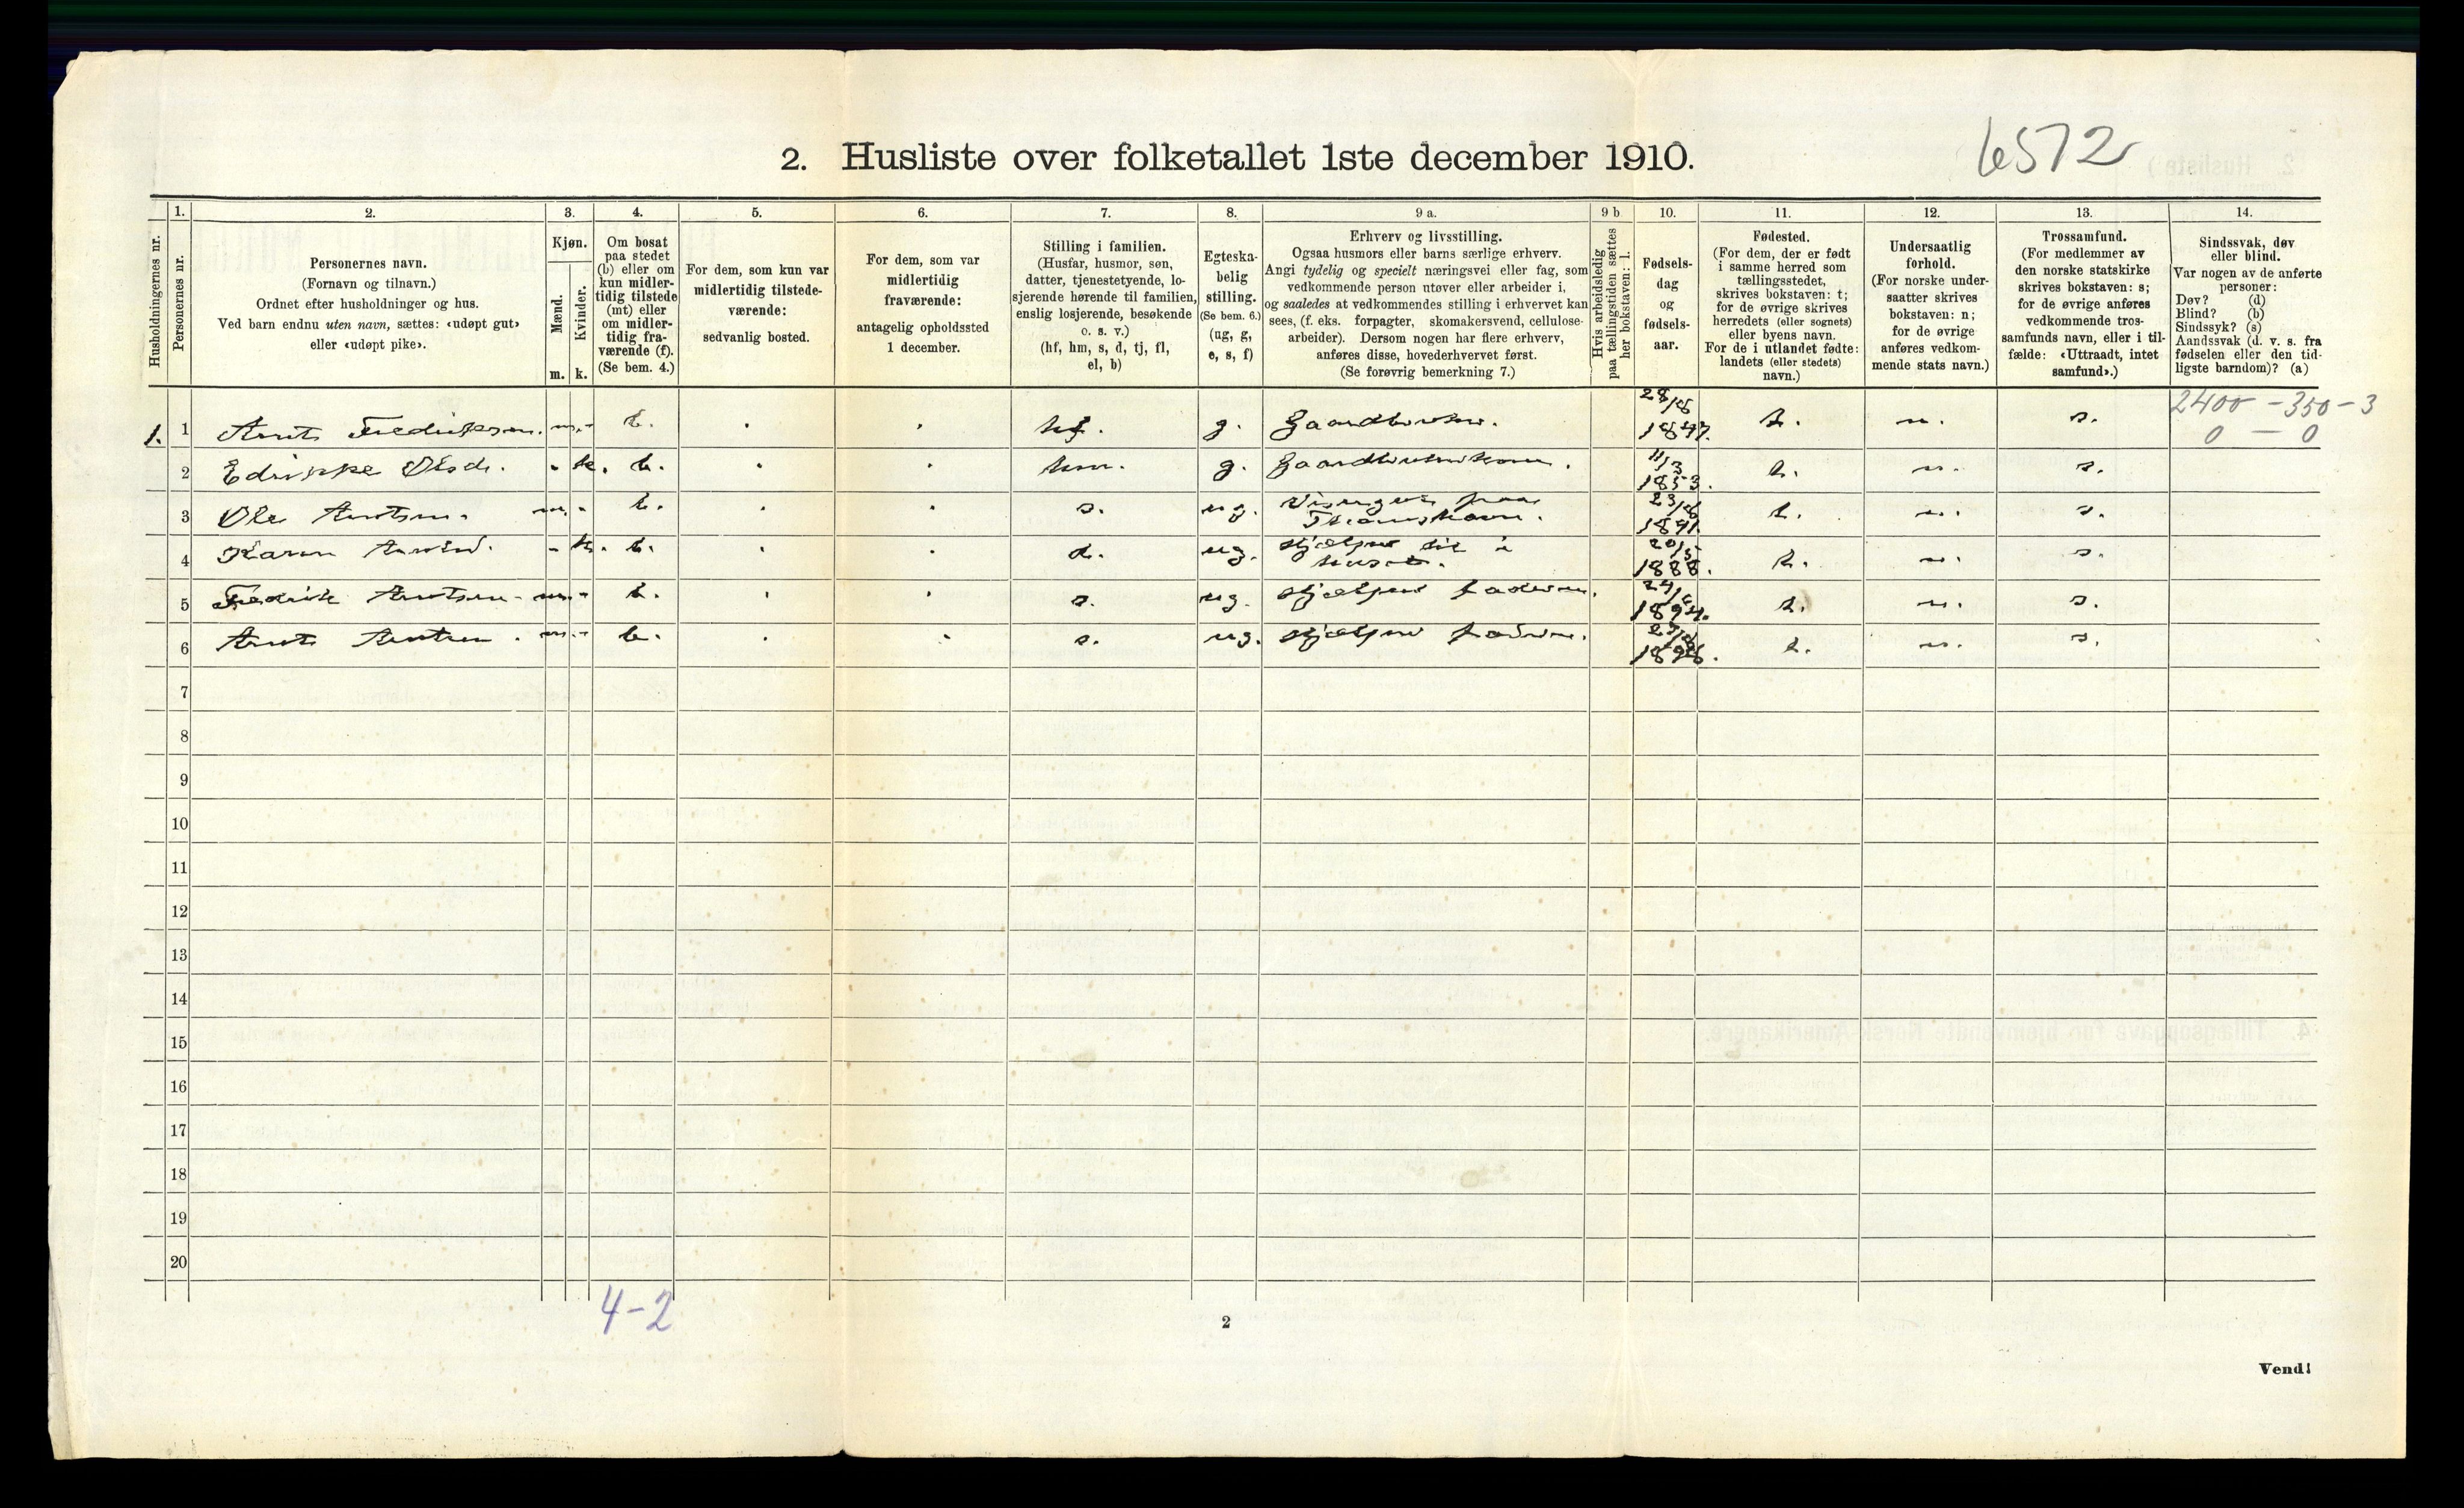 6572
2. Husliste over folketallet 1ste december 1910.
Husholdningernes nr.
1.
Personernes nr.
2.
Personernes navn.
(Fornavn og tilnavn.)
Ordnet efter husholdninger og hus.
Ved barn endnu uten navn, sættes: «udøpt gut»
eller «udøpt pike».
3.
Kjøn.
Mænd.
Kvinder.
m. k.
4.
Om bosat
paa stedet
(b) eller om
kun midler-
tidig tilstede
(mt) eller
om midler-
tidig fra-
værende (f).
(Se bem. 4.)
5.
For dem, som kun var
midlertidig tilstede-
værende:
sedvanlig bosted.
6.
For dem, som var
midlertidig
fraværende:
antagelig opholdssted
1 december.
7.
Stilling i familien.
(Husfar, husmor, søn,
datter, tjenestetyende, lo-
sjerende hørende til familien,
enslig losjerende, besøkende
o. s. v.)
(hf, hm, s, d, tj, fl,
el, b)
8.
Egteska-
belig
stilling.
(Se bem. 6.)
(ug, g,
e, s, f)
9 a.
Erhverv og livsstilling.
Ogsaa husmors eller barns særlige erhverv.
Angi tydelig og specielt næringsvei eller fag, som
vedkommende person utøver eller arbeider i,
og saaledes at vedkommendes stilling i erhvervet kan
sees, (f. eks. forpagter, skomakersvend, cellulose-
arbeider). Dersom nogen har flere erhverv,
anføres disse, hovederhvervet først.
(Se forøvrig bemerkning 7.)
9 b
Hvis arbeidsledig
paa tællingstiden sættes
her bokstaven: l.
10.
Fødsels-
dag
og
fødsels-
aar.
11.
Fødested.
(For dem, der er født
i samme herred som
tællingsstedet,
skrives bokstaven: t;
for de øvrige skrives
herredets (eller sognets)
eller byens navn.
For de i utlandet fødte:
landets (eller stedets)
navn.)
12.
Undersaatlig
forhold.
(For norske under-
saatter skrives
bokstaven: n;
for de øvrige
anføres vedkom-
mende stats navn.)
13.
Trossamfund.
(For medlemmer av
den norske statskirke
skrives bokstaven: s;
for de øvrige anføres
vedkommende tros-
samfunds navn, eller i til-
fælde: «Uttraadt, intet
samfund».)
14.
Sindssvak, døv
eller blind.
Var nogen av de anførte
personer:
Døv? (d)
Blind? (b)
Sindssyk? (s)
Aandssvak (d. v. s. fra
fødselen eller den tid-
ligste barndom)? (a)
2400 - 350 - 3
0 - 0
1. 1 Arnt Fredriksen. m. - b. hf. g. Gaardbruker. 1847. t. n. s.
2 Edrikke Olsd. - k. b. hm. g. Gaardbrukerkone. 11/3 1853. t. n. s.
3 Ole Arntsen. m. - b. s. ug. paa Thamshavn. 1891. t. n. s.
4 Karen Arntsd. - k. b. d. ug. hjælper til i huset. 20/5 1888. t. n. s.
5 Fredrik Arntsen m. - b. s. ug. hjælper faderen. 1894. t. n. s.
6 Arnt Arntsen. m. - b. s. ug. hjælper faderen. 1898. t. n. s.
7
8
9
10
11
12
13
14
15
16
17
18
19
20
4-2
2
Vend!